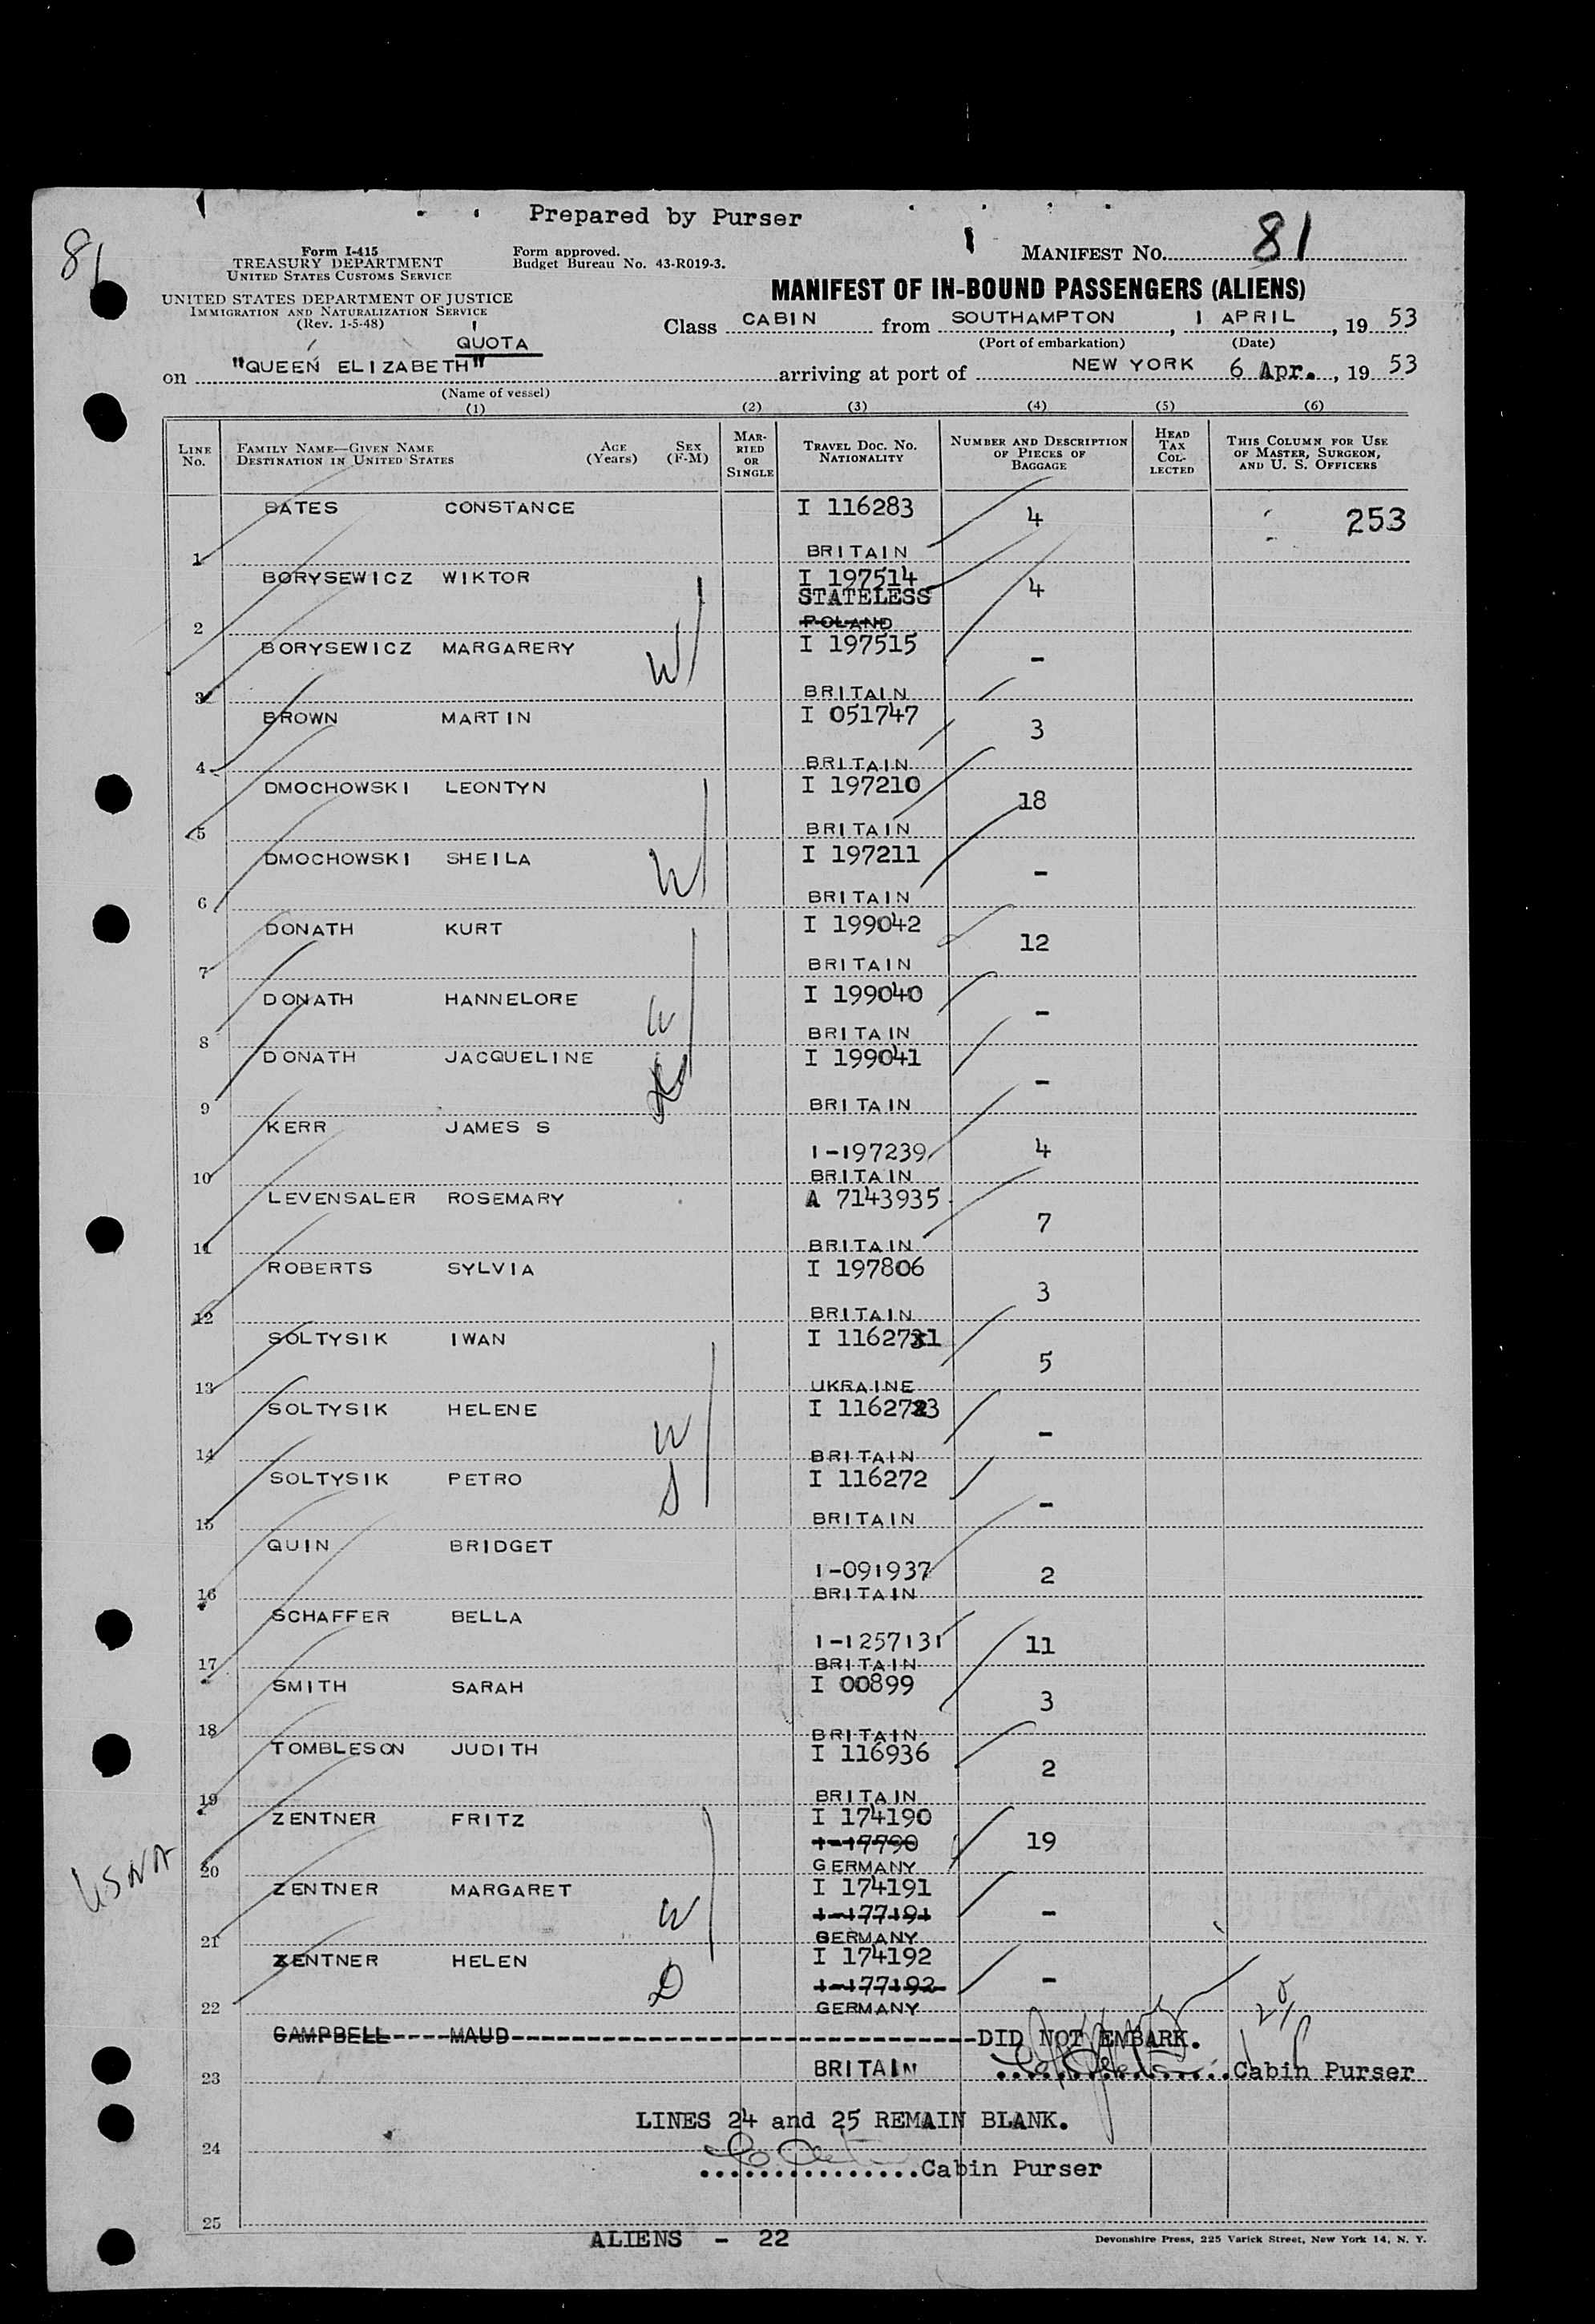 Prepared by Purser
81
Form I-415
TREASURY DEPARTMENT
UNITED STATES CUSTOMS SERVICE
Form approved.
Budget Bureau No. 43-R019-3.
MANIFEST No. 81
UNITED STATES DEPARTMENT OF JUSTICE
IMMIGRATION AND NATURALIZATION SERVICE
(Rev. 1-5-48)
MANIFEST OF IN-BOUND PASSENGERS (ALIENS)
Class CABIN from SOUTHAMPTON, 1 APRIL, 19 53
(Port of embarkation) (Date)
QUOTA
on "QUEEN ELIZABETH" arriving at port of NEW YORK 6 Apr., 19 53
(Name of vessel)
(1) (2) (3) (4) (5) (6)
LINE No. FAMILY NAME—GIVEN NAME DESTINATION IN UNITED STATES AGE (Years) SEX (F-M) MARRIED OR SINGLE TRAVEL DOC. No. NATIONALITY NUMBER AND DESCRIPTION OF PIECES OF BAGGAGE HEAD TAX COLLECTED THIS COLUMN FOR USE OF MASTER, SURGEON, AND U. S. OFFICERS
BATES CONSTANCE I 116283 4 253
1 BRITAIN
BORYSEWICZ WIKTOR I 197514 4
STATELESS
2 POLAND
BORYSEWICZ MARGARERY W I 197515 -
3 BRITAIN
BROWN MARTIN I 051747 3
4 BRITAIN
DMOCHOWSKI LEONTYN I 197210 18
5 BRITAIN
DMOCHOWSKI SHEILA W I 197211 -
6 BRITAIN
DONATH KURT I 199042 12
7 BRITAIN
DONATH HANNELORE W I 199040 -
8 BRITAIN
DONATH JACQUELINE I 199041 -
9 BRITAIN
KERR JAMES S
I-197239 4
10 BRITAIN
LEVENSALER ROSEMARY A 7143935 7
11 BRITAIN
ROBERTS SYLVIA I 197806 3
12 BRITAIN
SOLTYSIK IWAN I 116271 5
13 UKRAINE
SOLTYSIK HELENE W I 116273 -
14 BRITAIN
SOLTYSIK PETRO S I 116272 -
15 BRITAIN
QUIN BRIDGET
I-091937 2
16 BRITAIN
SCHAFFER BELLA
I-1257131 11
17 BRITAIN
SMITH SARAH I 00899 3
18 BRITAIN
TOMBLESON JUDITH I 116936 2
19 BRITAIN
ZENTNER FRITZ I 174190 19
I-17790
20 GERMANY
USNA
ZENTNER MARGARET W I 174191 -
I-177191
21 GERMANY
ZENTNER HELEN D I 174192 -
I-177192
22 GERMANY
CAMPBELL----MAUD----DID NOT EMBARK.
23 BRITAIN ................Cabin Purser
LINES 24 and 25 REMAIN BLANK.
24
...............Cabin Purser
25
ALIENS - 22
Devonshire Press, 225 Varick Street, New York 14, N. Y.